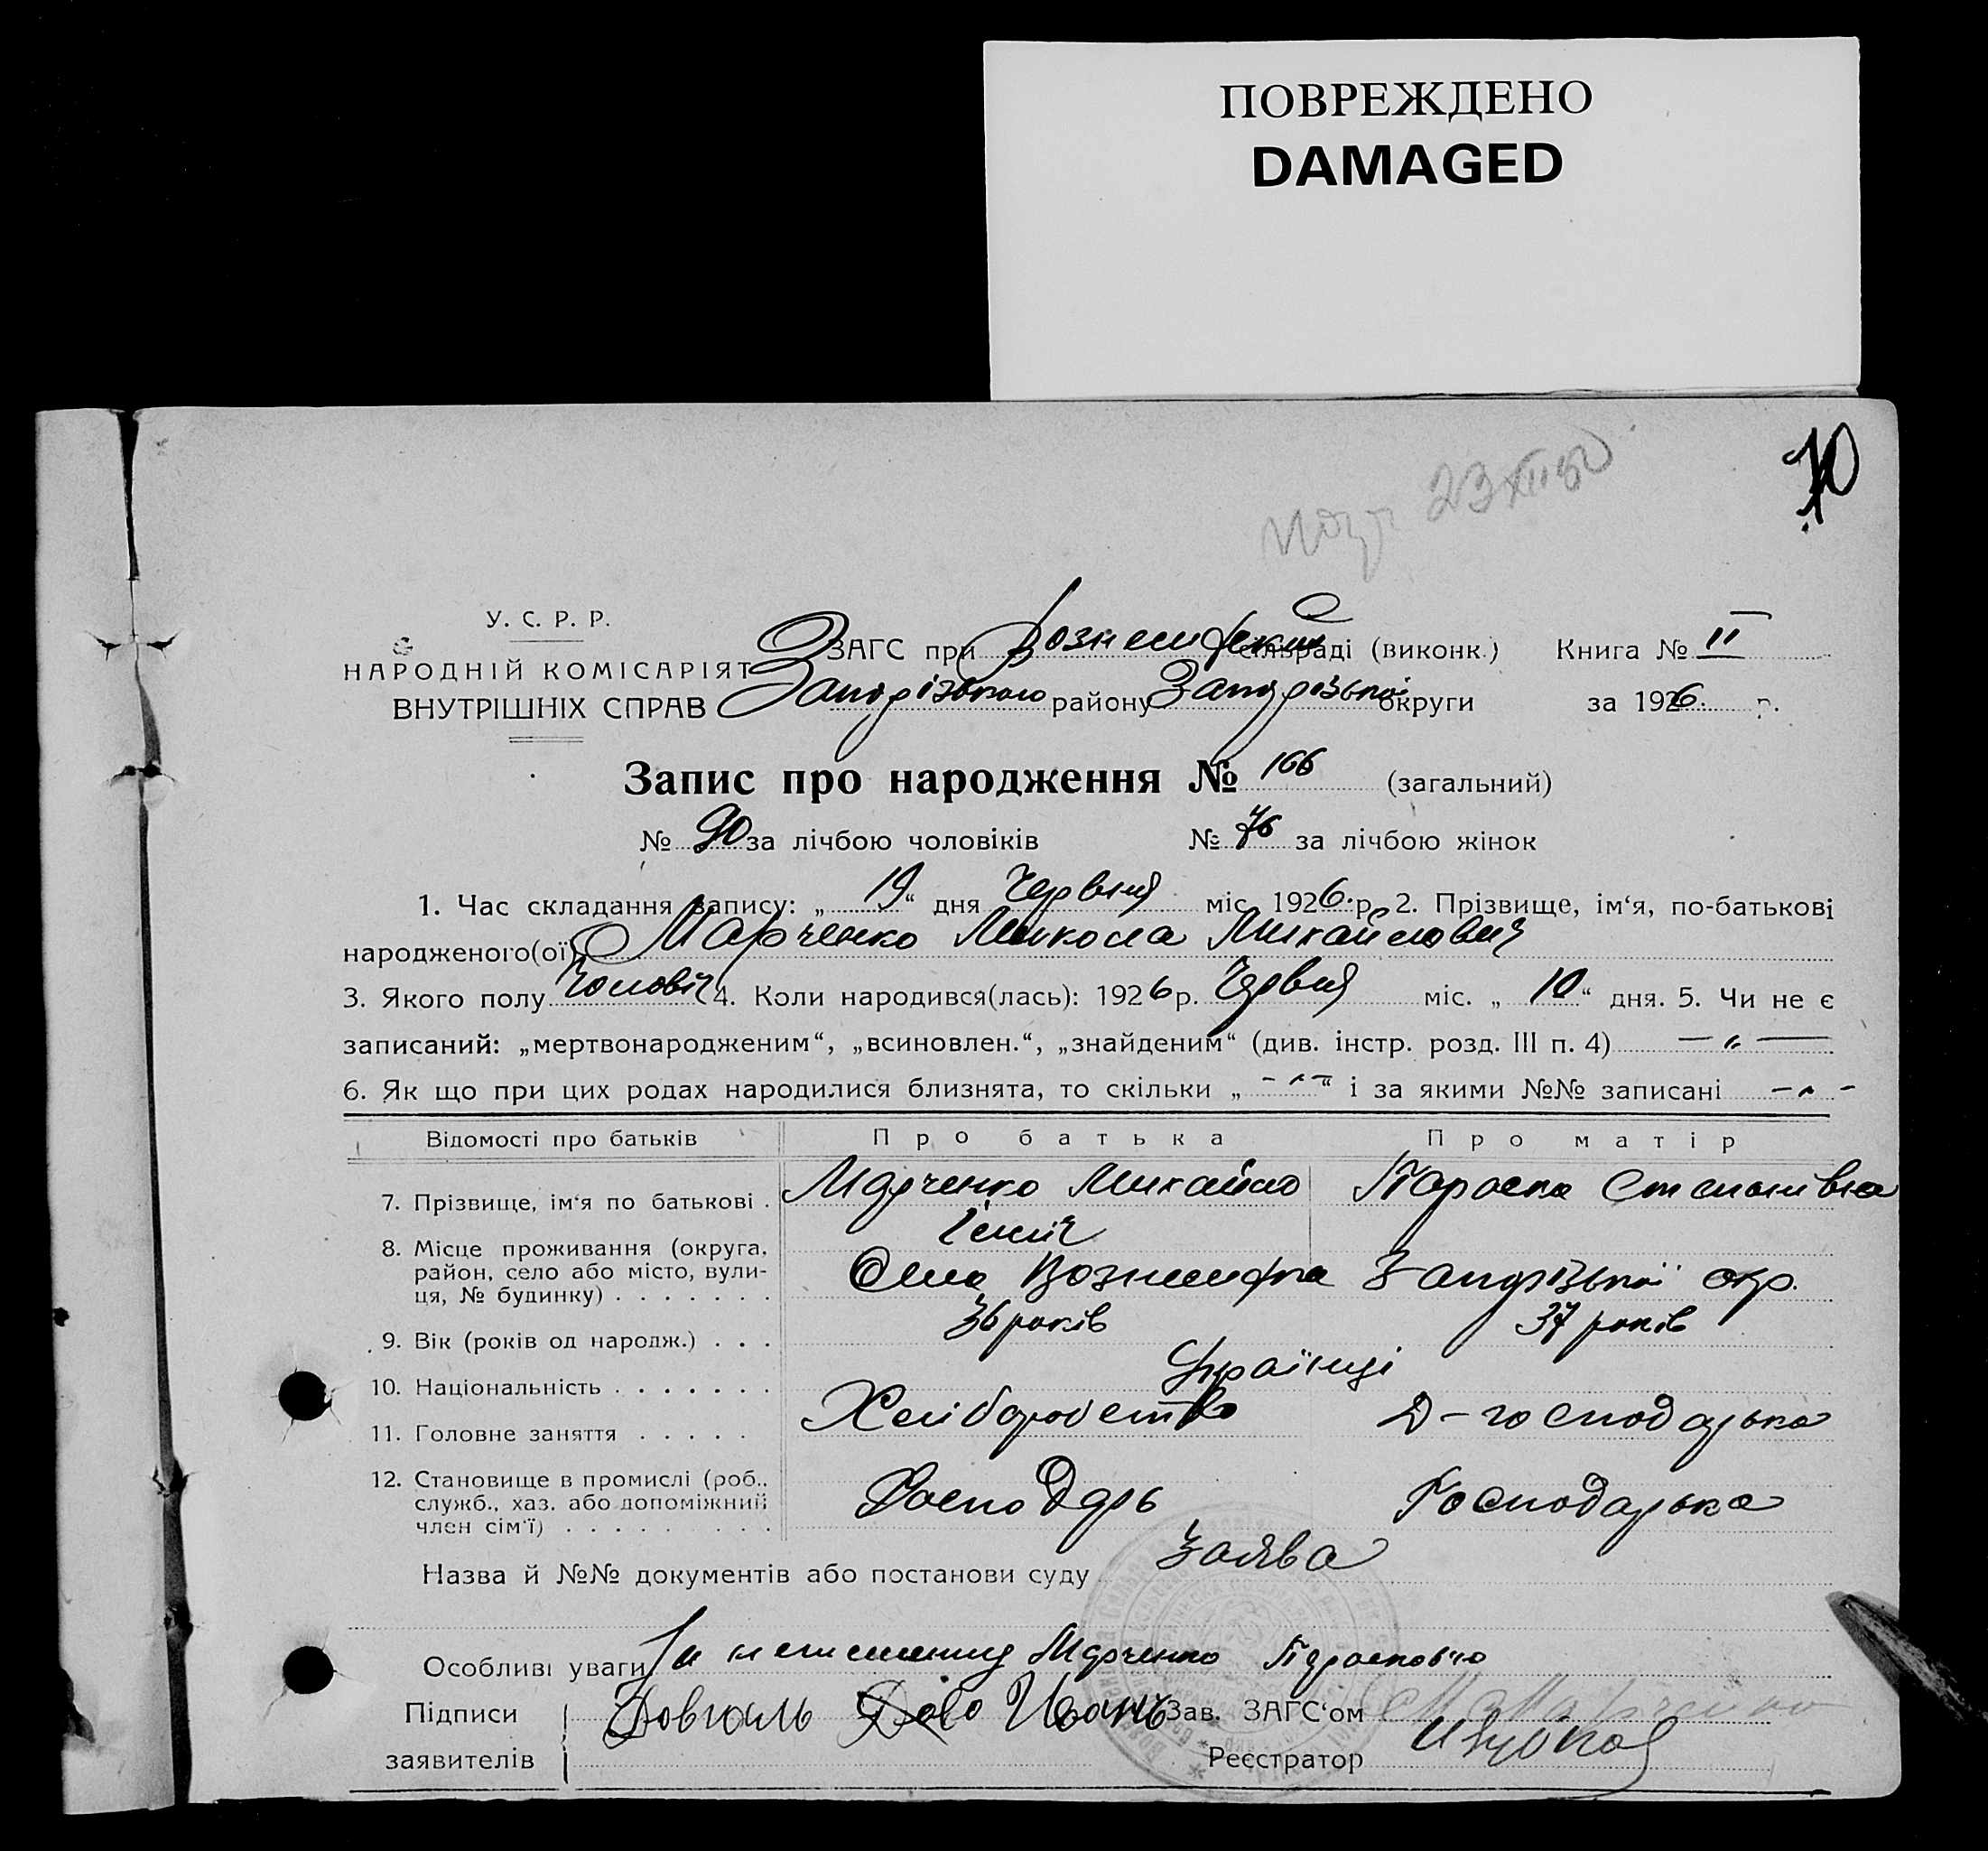 ПОВРЕЖДЕНО
DAMAGED
70
23 XII 50
У. С. Р. Р.
НАРОДНІЙ КОМІСАРІЯТ
ВНУТРІШНІХ СПРАВ
ЗАГС при Вознесенській сільраді (виконк.) Книга № II
Запорізького району Запорізької округи за 1926 р.
Запис про народження № 166 (загальний)
№ 90 за лічбою чоловіків № 76 за лічбою жінок
1. Час складання запису: „ 19 “ дня Червня міс. 1926 р. 2. Прізвище, ім‘я, по-батькові
народженого(ої) Марченко Микола Михайлович
3. Якого полу Чоловіч 4. Коли народився(лась): 1926 р. Червня міс. „ 10 “ дня. 5. Чи не є
записаний: „мертвонародженим“, „всиновлен.“, „знайденим“ (див. інстр. розд. III п. 4) — „ —
6. Як що при цих родах народилися близнята, то скільки „ - „ - “ і за якими №№ записані - „ -
Відомості про батьків Про батька Про матір
7. Прізвище, ім‘я по батькові . Марченко Михайло Параска Степанівна
8. Місце проживання (округа, район, село або місто, вулиця, № будинку) . . . . . . . Село Вознесенка Запорізької окр.
9. Вік (років од народж.) . . . 36 років 37 років
10. Національність . . . . . . . Українці
11. Головне заняття . . . . . Хліборобство Д-господарька
12. Становище в промислі (роб., служб., хаз. або допоміжний член сім‘ї) . . . . . . . . . Господарь Господарька
Назва й №№ документів або постанови суду Заява
Особливі уваги За неписьменну Марченко Парасковію
Підписи
заявителів
Довгаль Иванъ
Зав. ЗАГС‘ом
Реєстратор